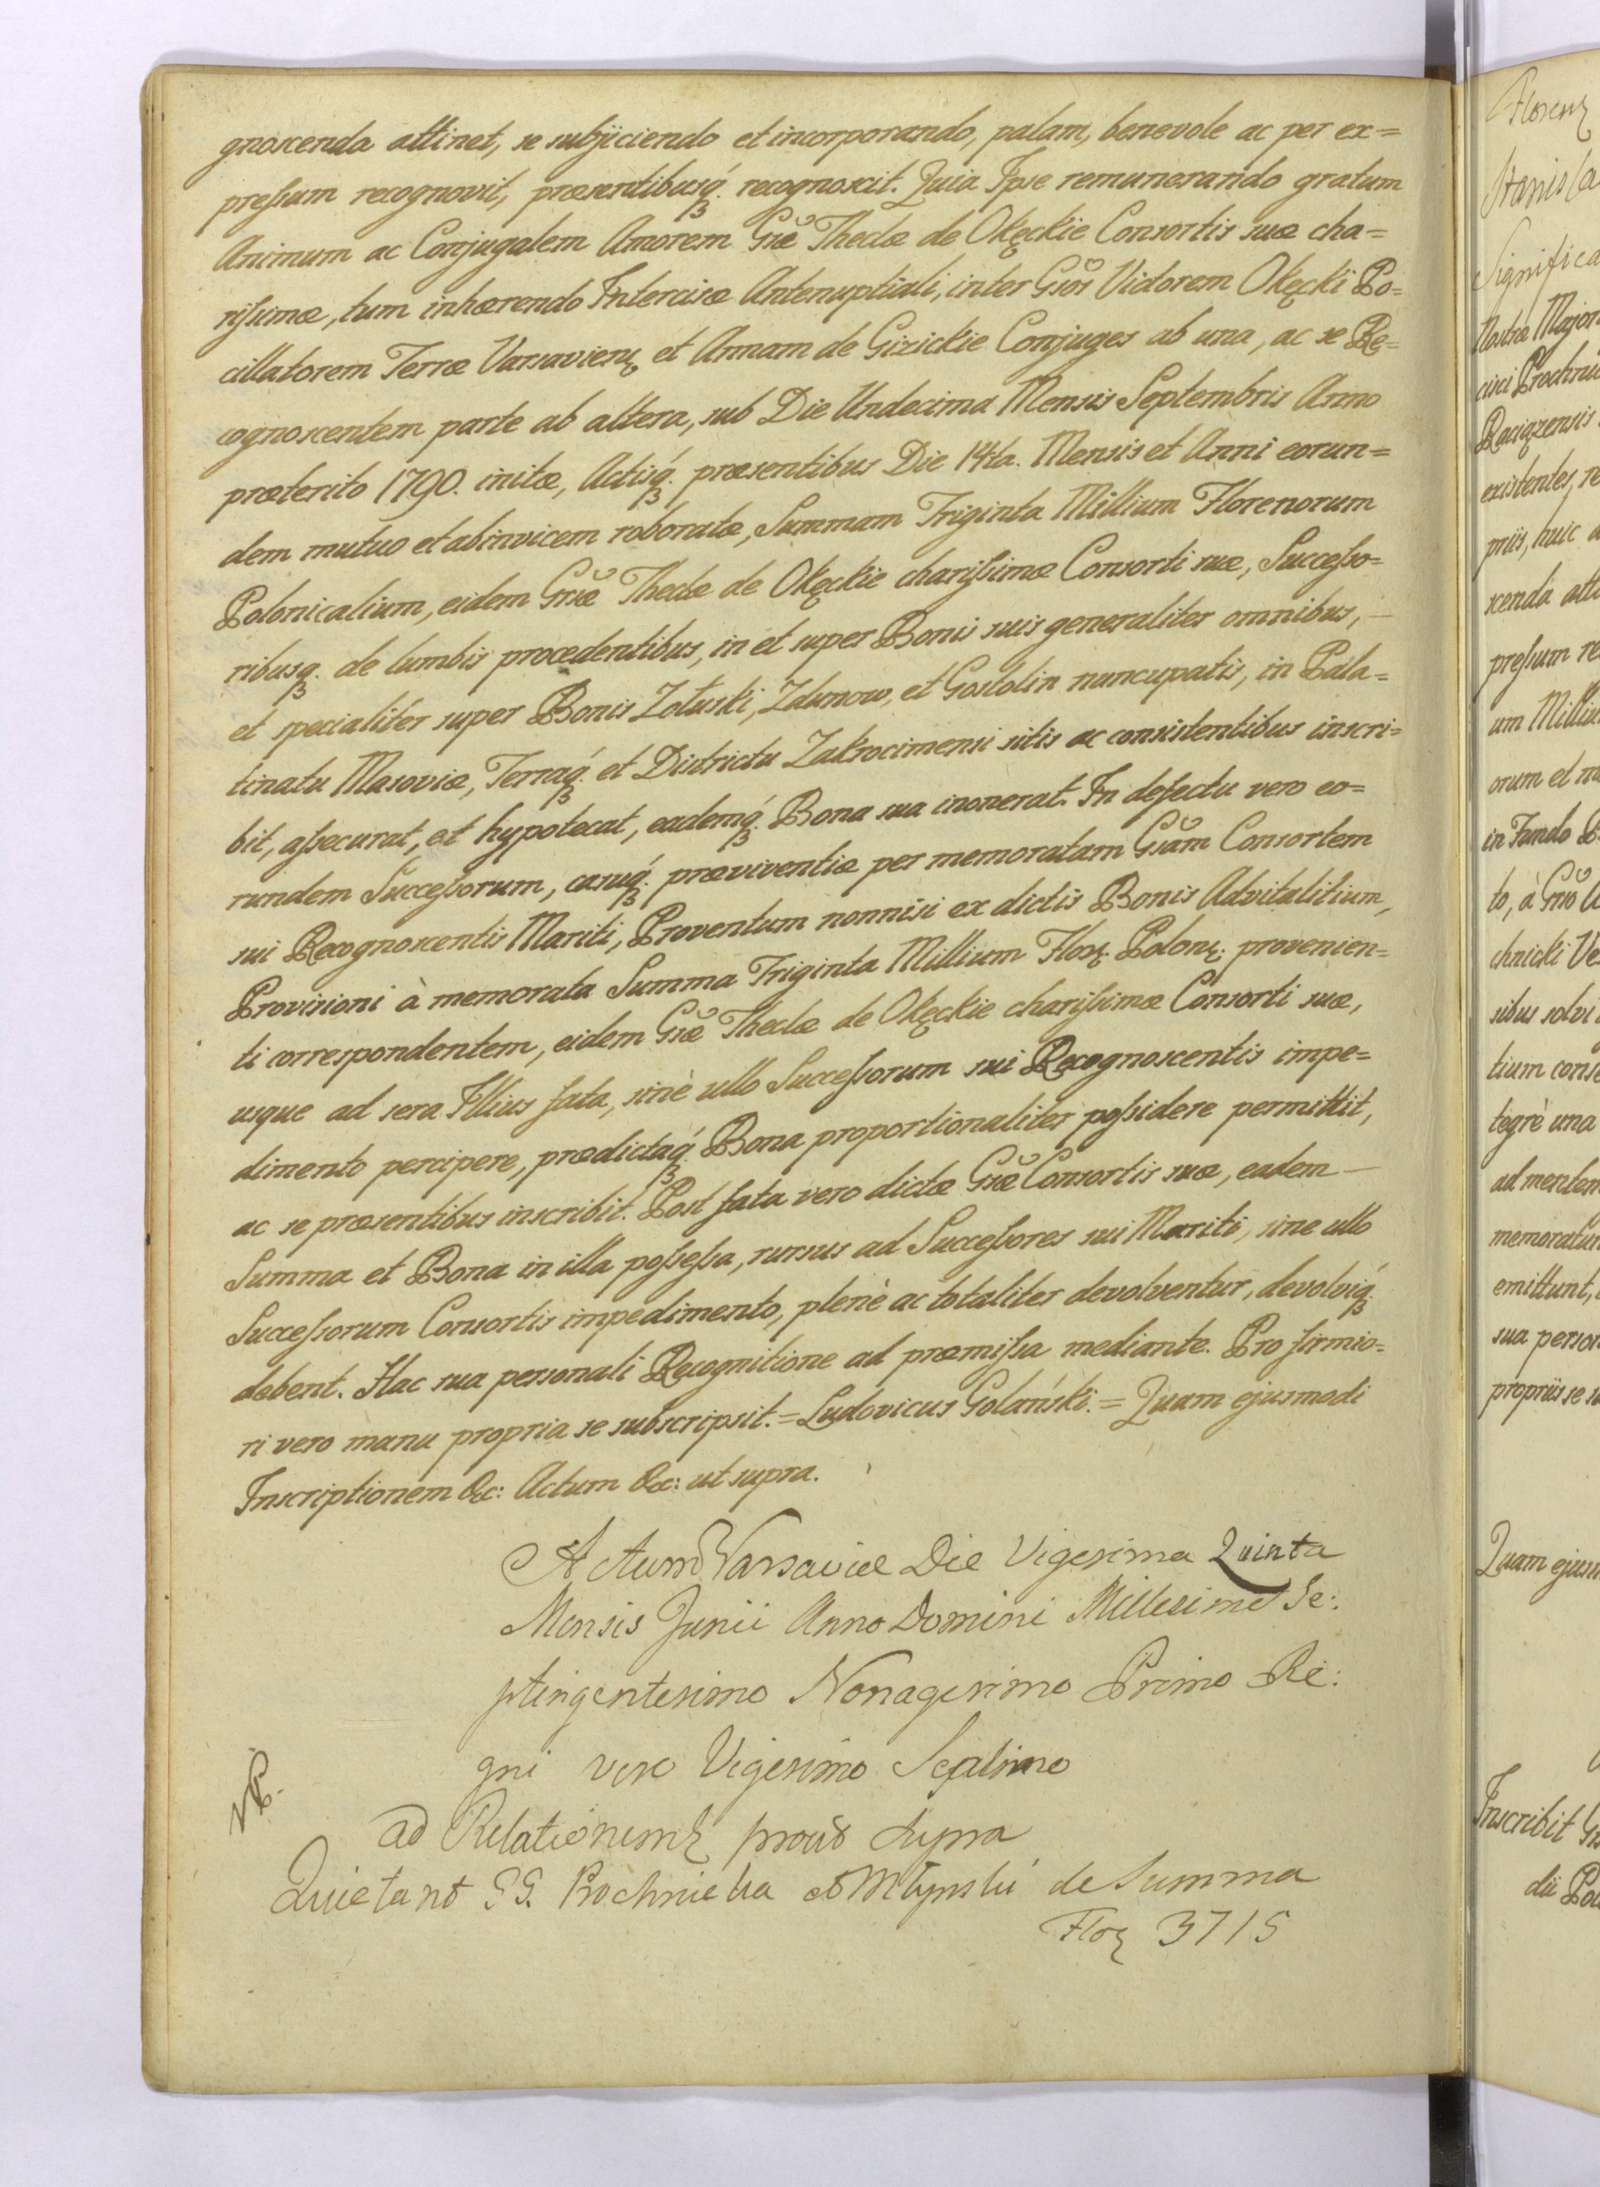 gnoscenda attinet, se subjiciendo et incorporando, palam, benevole ac per ex=
pressum recognovit, præsentibusq́. recognoscit. Quia Ipse remunerando gratum
Animum ac Conjugalem Amorem Gsæ Theclæ de Okęckie Consortis suæ cha=
rissimæ, tum inhærendo Intercisæ Antenuptiali, inter Gsos Victorem Okęcki Po=
cillatorem Terræ Varsaviens et Annam de Gizickie Conjuges ab una, ac se Re=
cognoscentem parte ab altera, sub Die Undecima Mensis Septembris Anno
præterito 1790. initæ, Actisq́. præsentibus Die 14ta. Mensis et Anni eorun=
dem mutuo et abinvicem roboratæ, Summam Triginta Millium Florenorum
Polonicalium, eidem Gsæ Theclæ de Okęckie charissimæ Consorti suæ, Successo=
ribusq. de lumbis procedentibus, in et super Bonis suis generaliter omnibus, —
et specialiter super Bonis Zołuski, Zdunow, et Gostolin nuncupatis, in Pala=
tinatu Masoviæ, Terraq́. et Districtu Zakrocimensi sitis ac consistentibus inscri=
bit, assecurat, et hypotecat, eademq́. Bona sua inonerat. In defectu vero eo=
rundem Successorum, casuq́. præviventiæ per memoratam Gsam Consortem
sui Recognoscentis Mariti, Proventum nonnisi ex dictis Bonis Advitalitium,
Provisioni à memorata Summa Triginta Millium Flor. Polon. provenien=
ti correspondentem, eidem Gsæ Theclæ de Okęckie charissimæ Consorti suæ,
usque ad sera Illius fata, sinè ullo Successorum sui Recognoscentis impe=
dimento percipere, prædictaq́. Bona proportionaliter possidere permittit,
ac se præsentibus inscribit. Post fata vero dictæ Gsæ Consortis suæ, eadem —
Summa et Bona in illa possessa, rursus ad Successores sui Mariti, sine ullo
Successorum Consortis impedimento, plenè ac totaliter devolventur, devolviq́.
debent. Hac sua personali Recognitione ad præmissa mediante. Pro firmio=
ri vero manu propria se subscripsit. = Ludovicus Golański. = Quam ejusmodi
Inscriptionem &c: Actum &c: ut supra.
Actum Varsaviæ Die Vigesima Quinta
Mensis Junii Anno Domini Millesimo Se:
ptingentesimo Nonagesimo Primo Re:
gni vero Vigesimo Septimo
ad Relationem prout supra
Quietant GG. Prochnicka et Młynski de Summa
Flor 3715
Floren
Stanisla
Significa
Nostræ Major
cini Prochni
Raciązensis
existentes, re
priis, huic a
scenda atti
pressum re
um Milliu
orum et n
in Fundo B
to, à Gso
chnicki Ve
sibus solvi
tium conse
tegrè una
ad mentem
memoratum
emittunt,
sua person
propriis se s
Quam ejusm
Inscribit Gs
dii Po